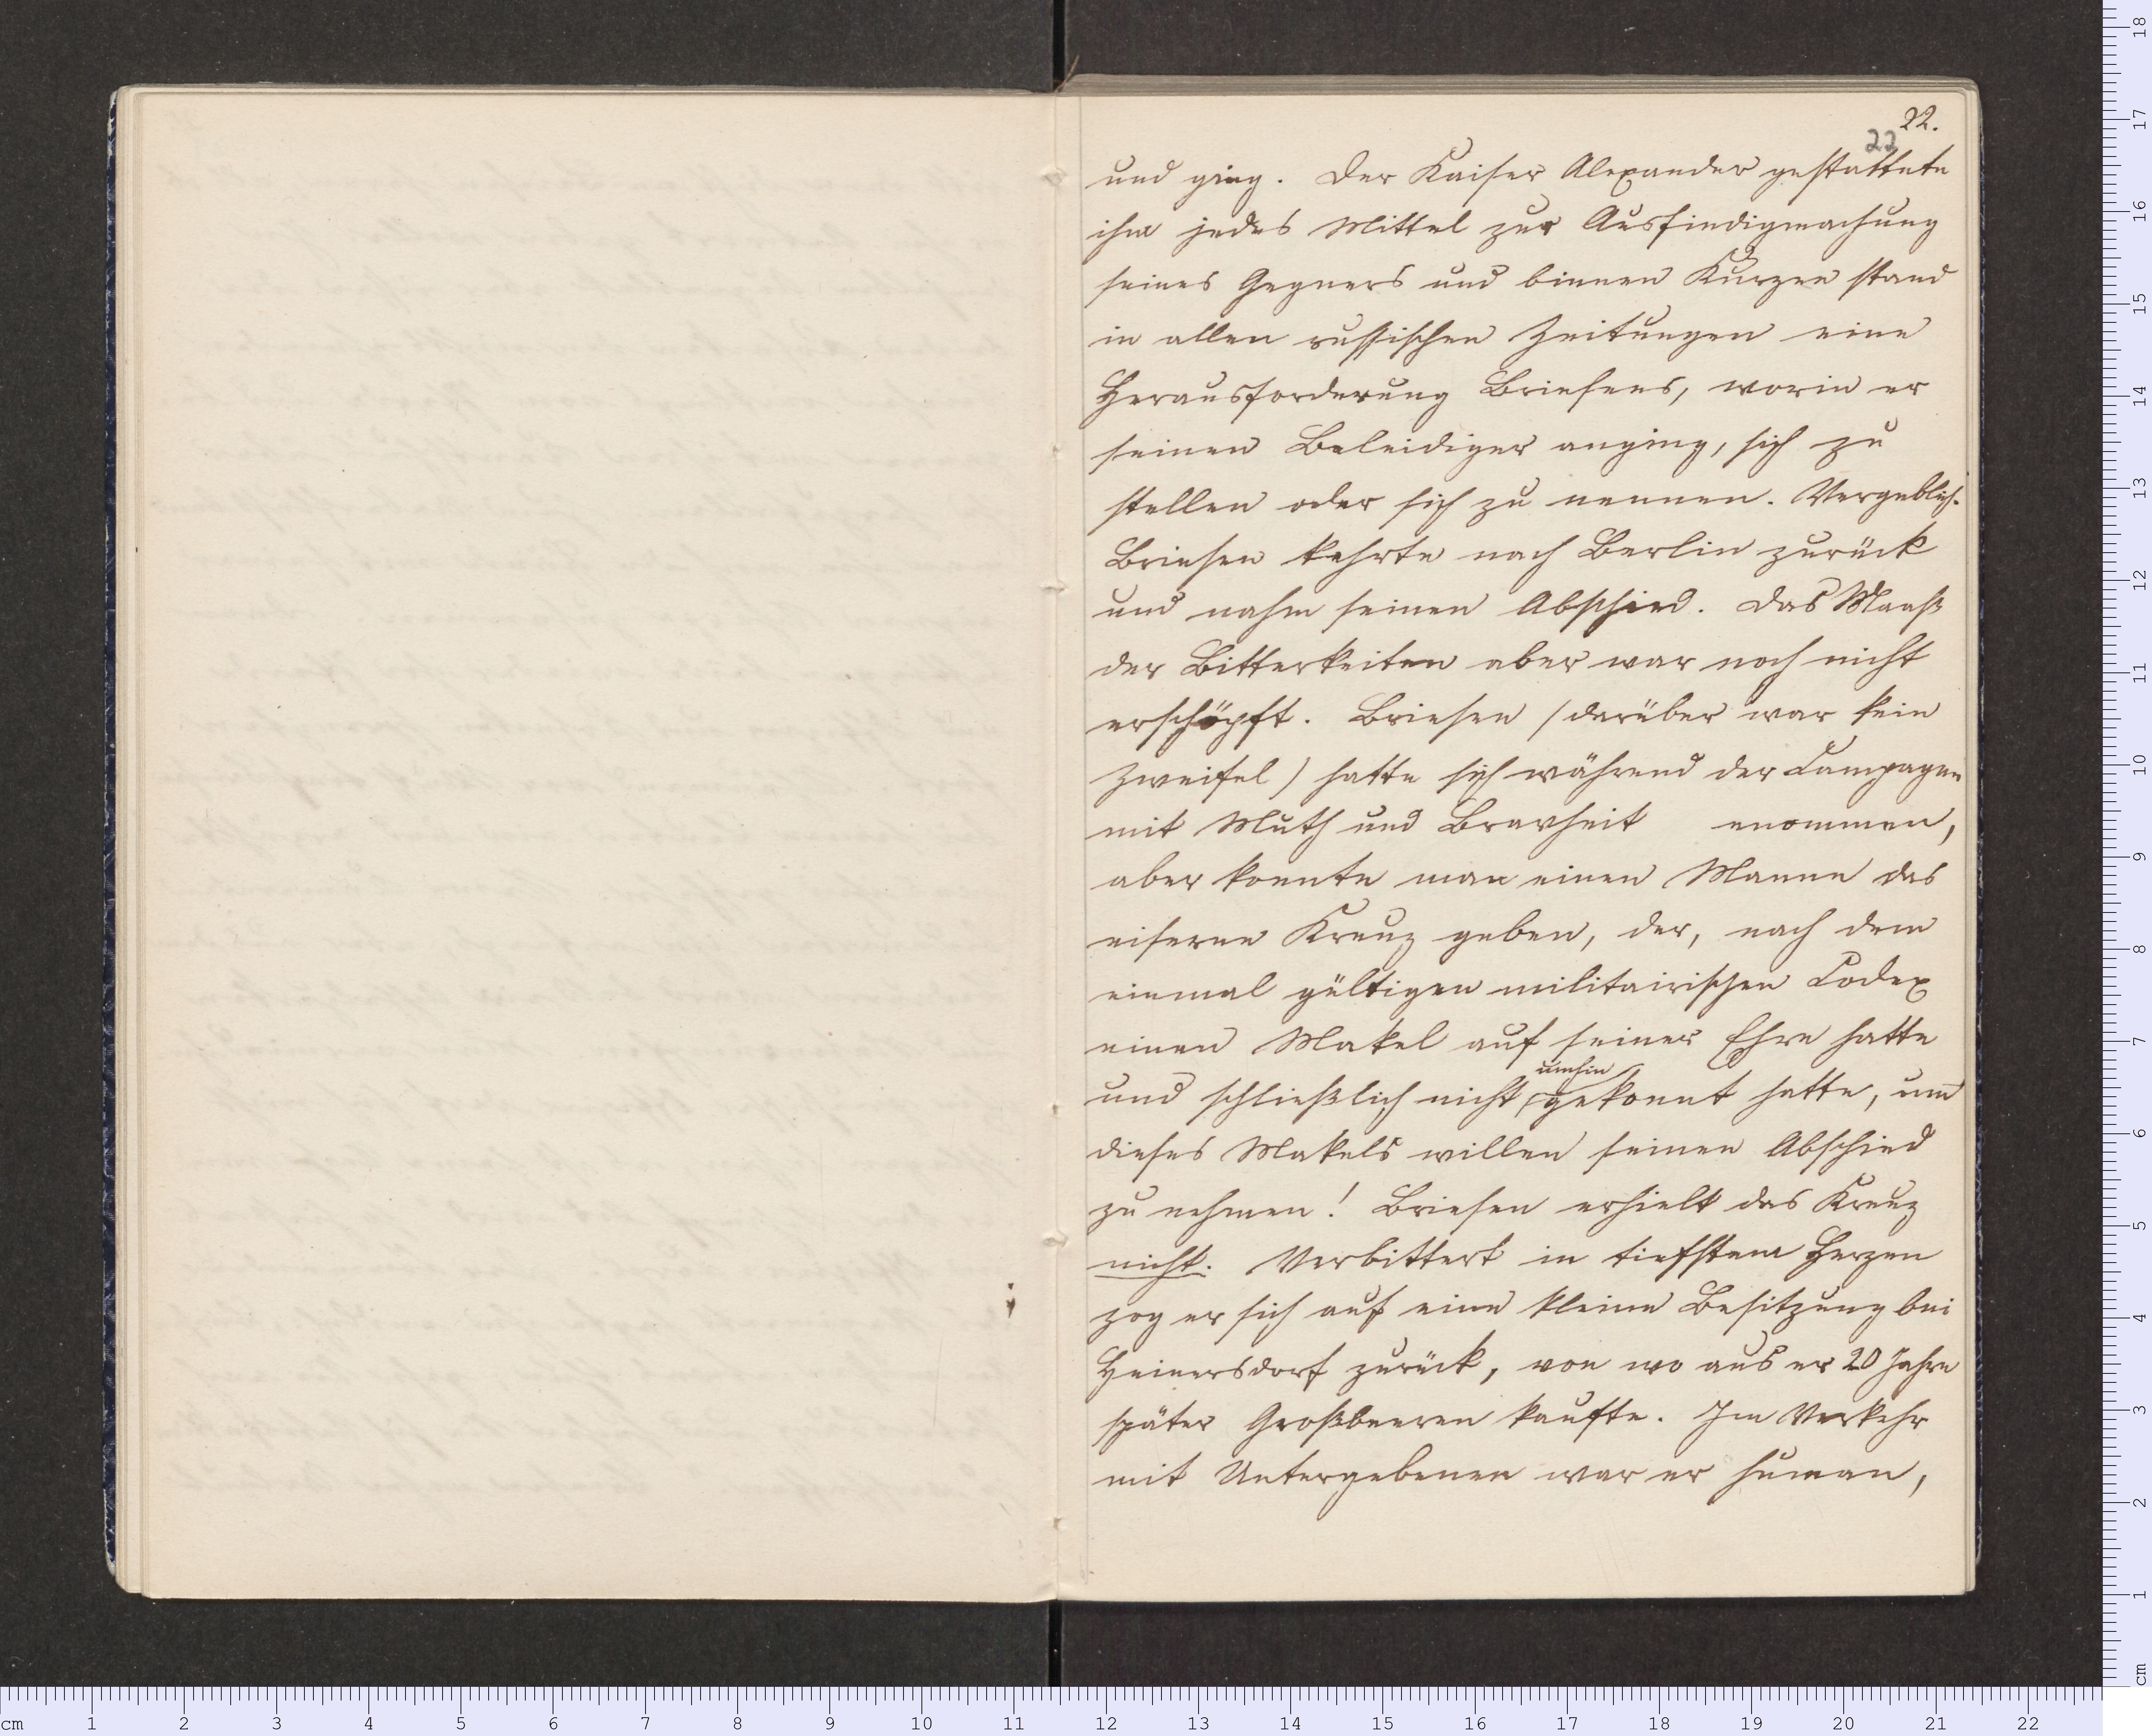 22.
22
und ging. Der Kaiser Alexander gestattete
ihm jedes Mittel zur Ausfindigmachung
seines Gegners und binnen Kurzen stand
in allen russischen Zeitungen eine
Herausforderung Briesens, worin er
seinen Beleidiger anging, sich zu
stellen oder sich zu nennen. Vergeblich.
Briesen kehrte nach Berlin zurück
und nahm seinen Abschied. Das Maaß
der Bitterkeiten aber war noch nicht
erschöpft. Briesen (darüber war kein
Zweifel) hatte sich während der Campagne
mit Muth und Bravheit enommen,
aber konnte man einen Manne das
eiserne Kreuz geben, der, nach dem
einmal gültigen militairischen Codex
einen Makel auf seiner Ehre hatte
und schließlich nicht umhin gekonnt hatte, um
dieses Makels willen seinen Abschied
zu nehmen! Briesen erhielt das Kreuz
nicht. Verbittert in tiefstem Herzen
zog er sich auf eine kleine Besitzung bei
Heinersdorf zurück, von wo aus er 20 Jahre
später Großbeeren kaufte. Im Verkehr
mit Untergebenen war er human,
cm 1 2 3 4 5 6 7 8 9 10 11 12 13 14 15 16 17 18 19 20 21 22
18
17
16
15
14
13
12
11
10
9
8
7
6
5
4
3
2
1
cm